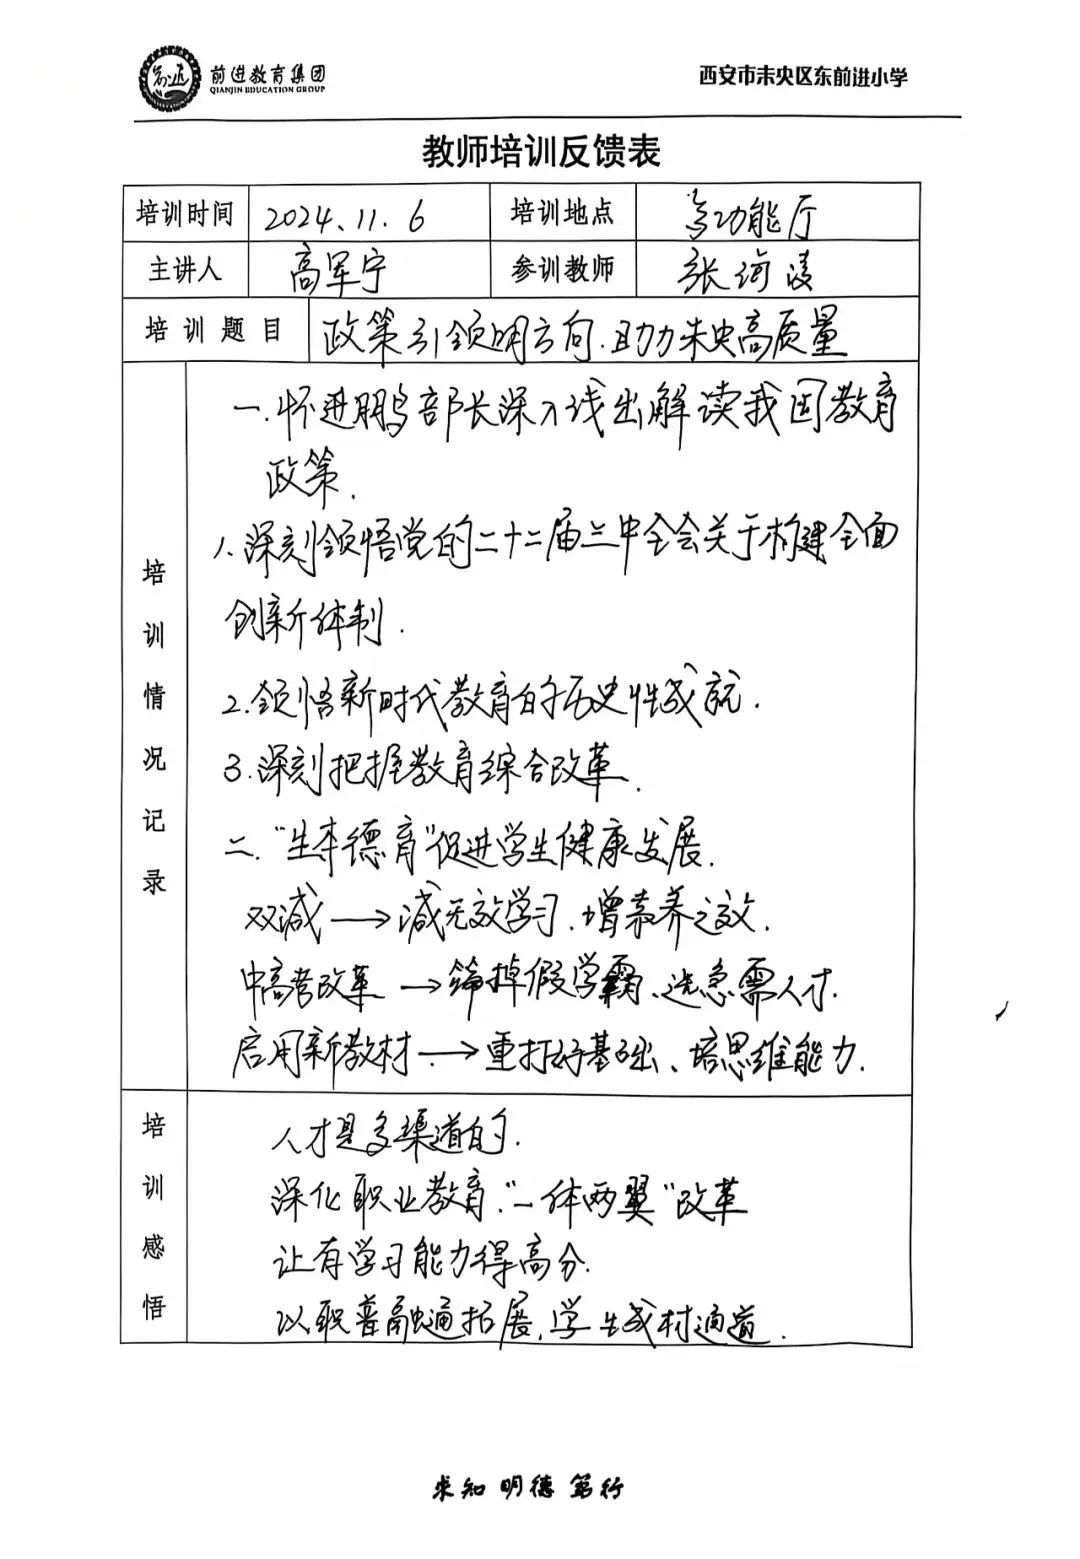 前进教育集团
QIANJIN EDUCATION GROUP
西安市未央区东前进小学
教师培训反馈表
培训时间 2024.11.6 培训地点 多功能厅
主讲人 高军宁 参训教师 张海凌
培训题目 政策引领明方向.助力未央高质量
培训情况记录
一.怀进鹏部长深入浅出解读我国教育
政策.
1.深刻领悟党的二十二届三中全会关于构建全面
创新体制.
2.领悟新时代教育的历史性成就.
3.深刻把握教育综合改革.
二."生本德育"促进学生健康发展.
双减→减无效学习.增素养之效.
中高考改革→筛掉假学霸、选急需人才.
启用新教材→重打好基础、培思维能力.
培训感悟
人才是多渠道的.
深化职业教育."一体两翼"改革
让有学习能力得高分.
以职普融通拓展,学生成材通道.
求知 明德 笃行